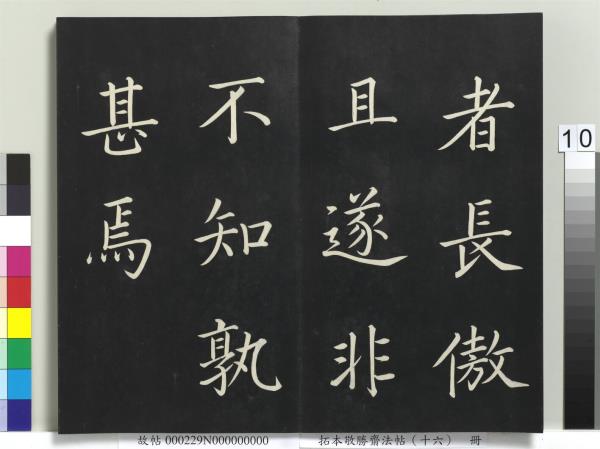 者長傲
且遂非
不知孰
甚焉
10
故帖 000229N000000000 拓本敬勝齋法帖（十六） 冊